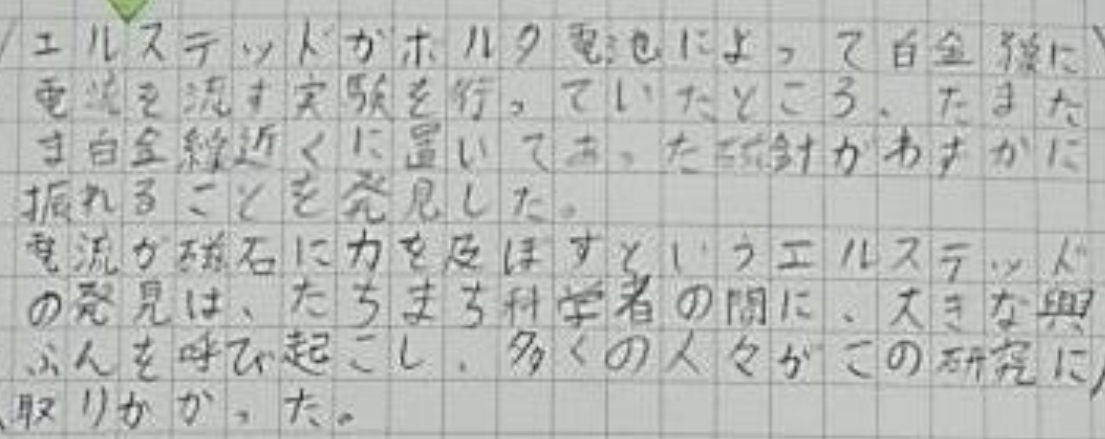 エルステッドがボルタ電池によって白金線に
電流を流す実験を行っていたところ、たまた
ま白金線近くに置いてあった磁針がわずかに
振れることを発見した。
電流が磁石に力を及ぼすというエルステッド
の発見は、たちまち科学者の間に、大きな興
ふんを呼び起こし、多くの人々がこの研究に
取りかかった。